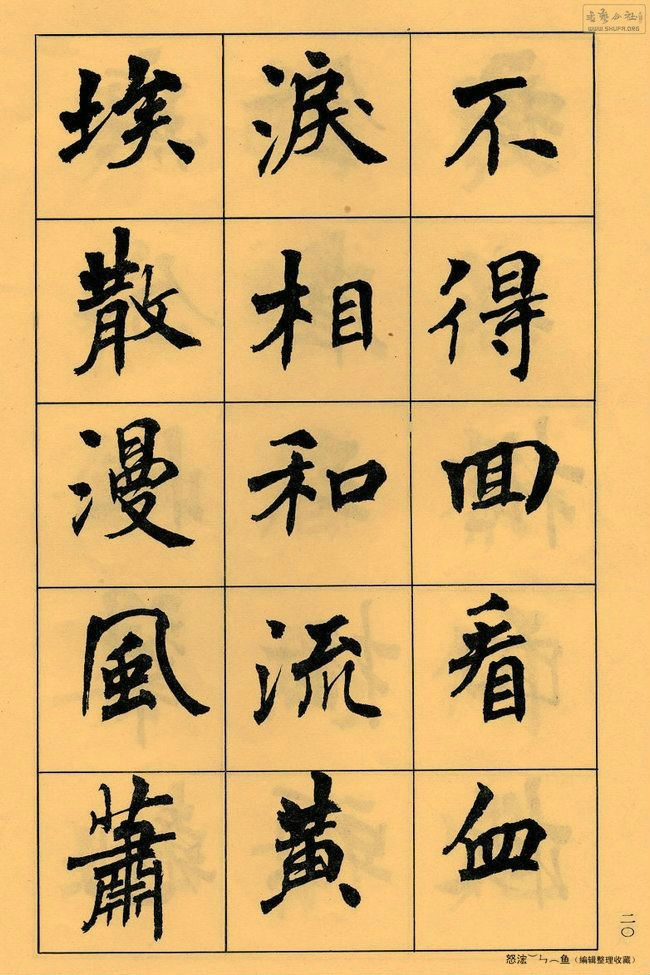 不得回看血
淚相和流黃
埃散漫風蕭
二〇
WWW.SHUFA.ORG
(编辑整理收藏)